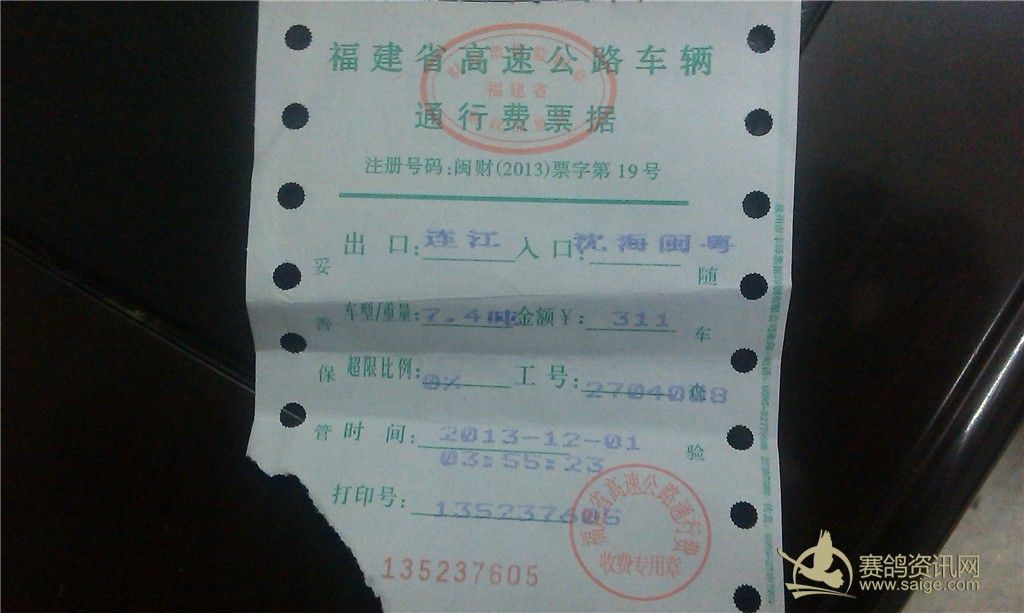 福建省高速公路车辆
通行费票据
福建省
注册号码:闽财(2013)票字第 19 号
出 口:连江 入 口:沈海闽粤
车型/重量:7.4吨 金额￥: 311
超限比例:0% 工 号:2704008
时 间:2013-12-01
03:55:23
打印号:135237605
135237605
妥善保管
随车查验
福建省高速公路通行费
收费专用章
赛鸽资讯网
www.saige.com